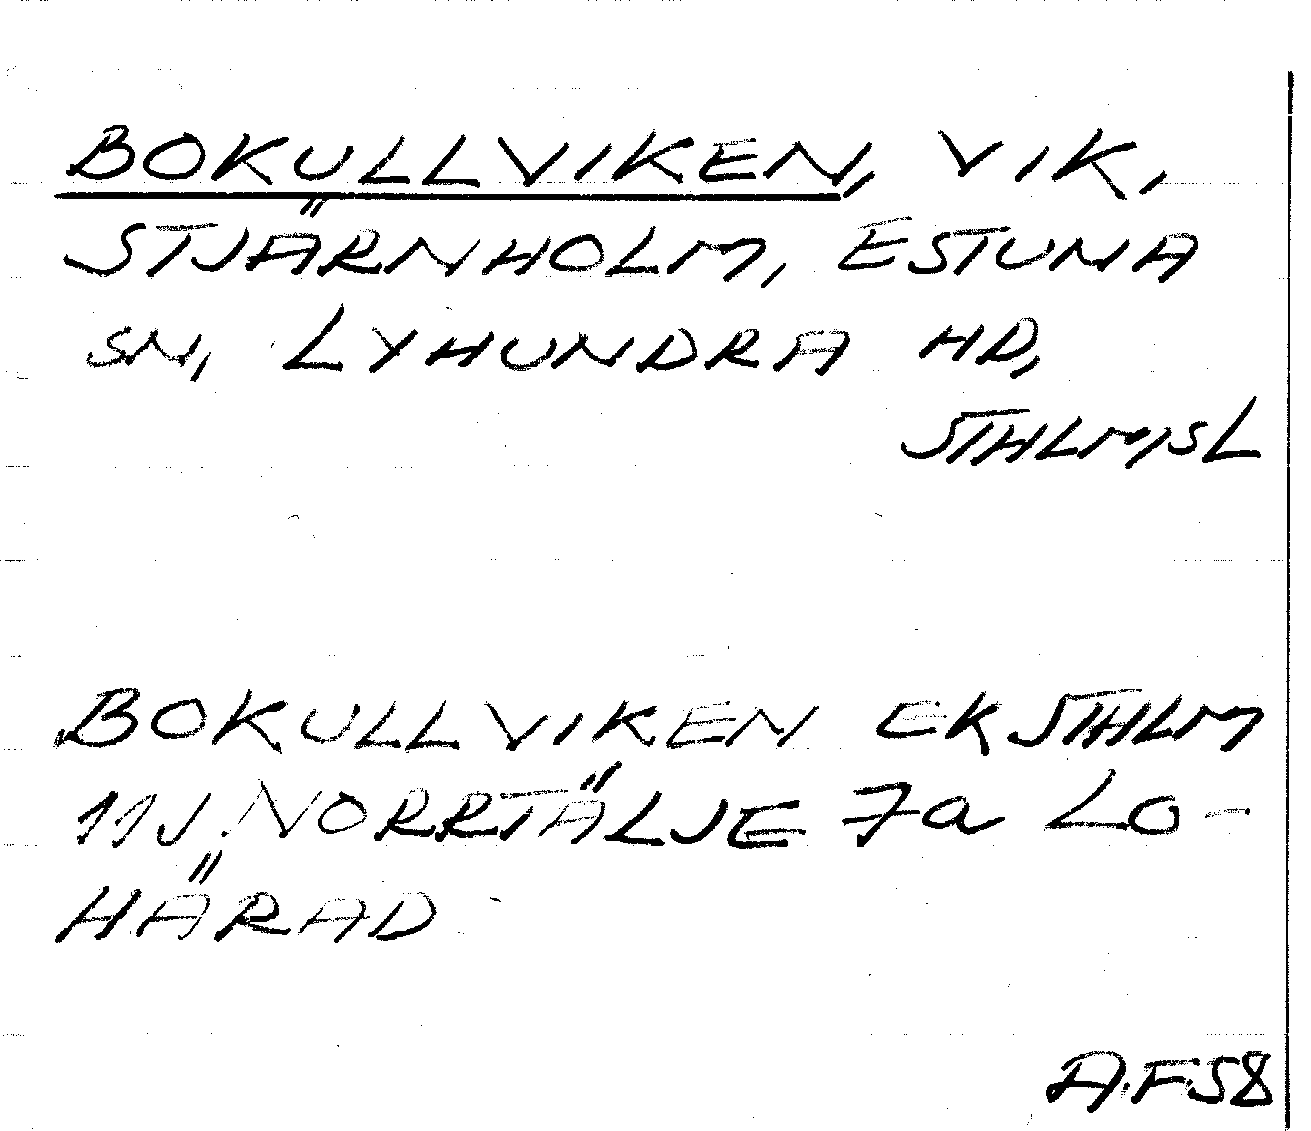 BOKULLVIKEN, VIK,
STJÄRNHOLM, ESTUNA
SN, LYHUNDRA HD,
STHLMSL
BOKULLVIKEN EKSTHLM
11J NORRTÄLJE 7a LO-
HÄRAD
A.F58